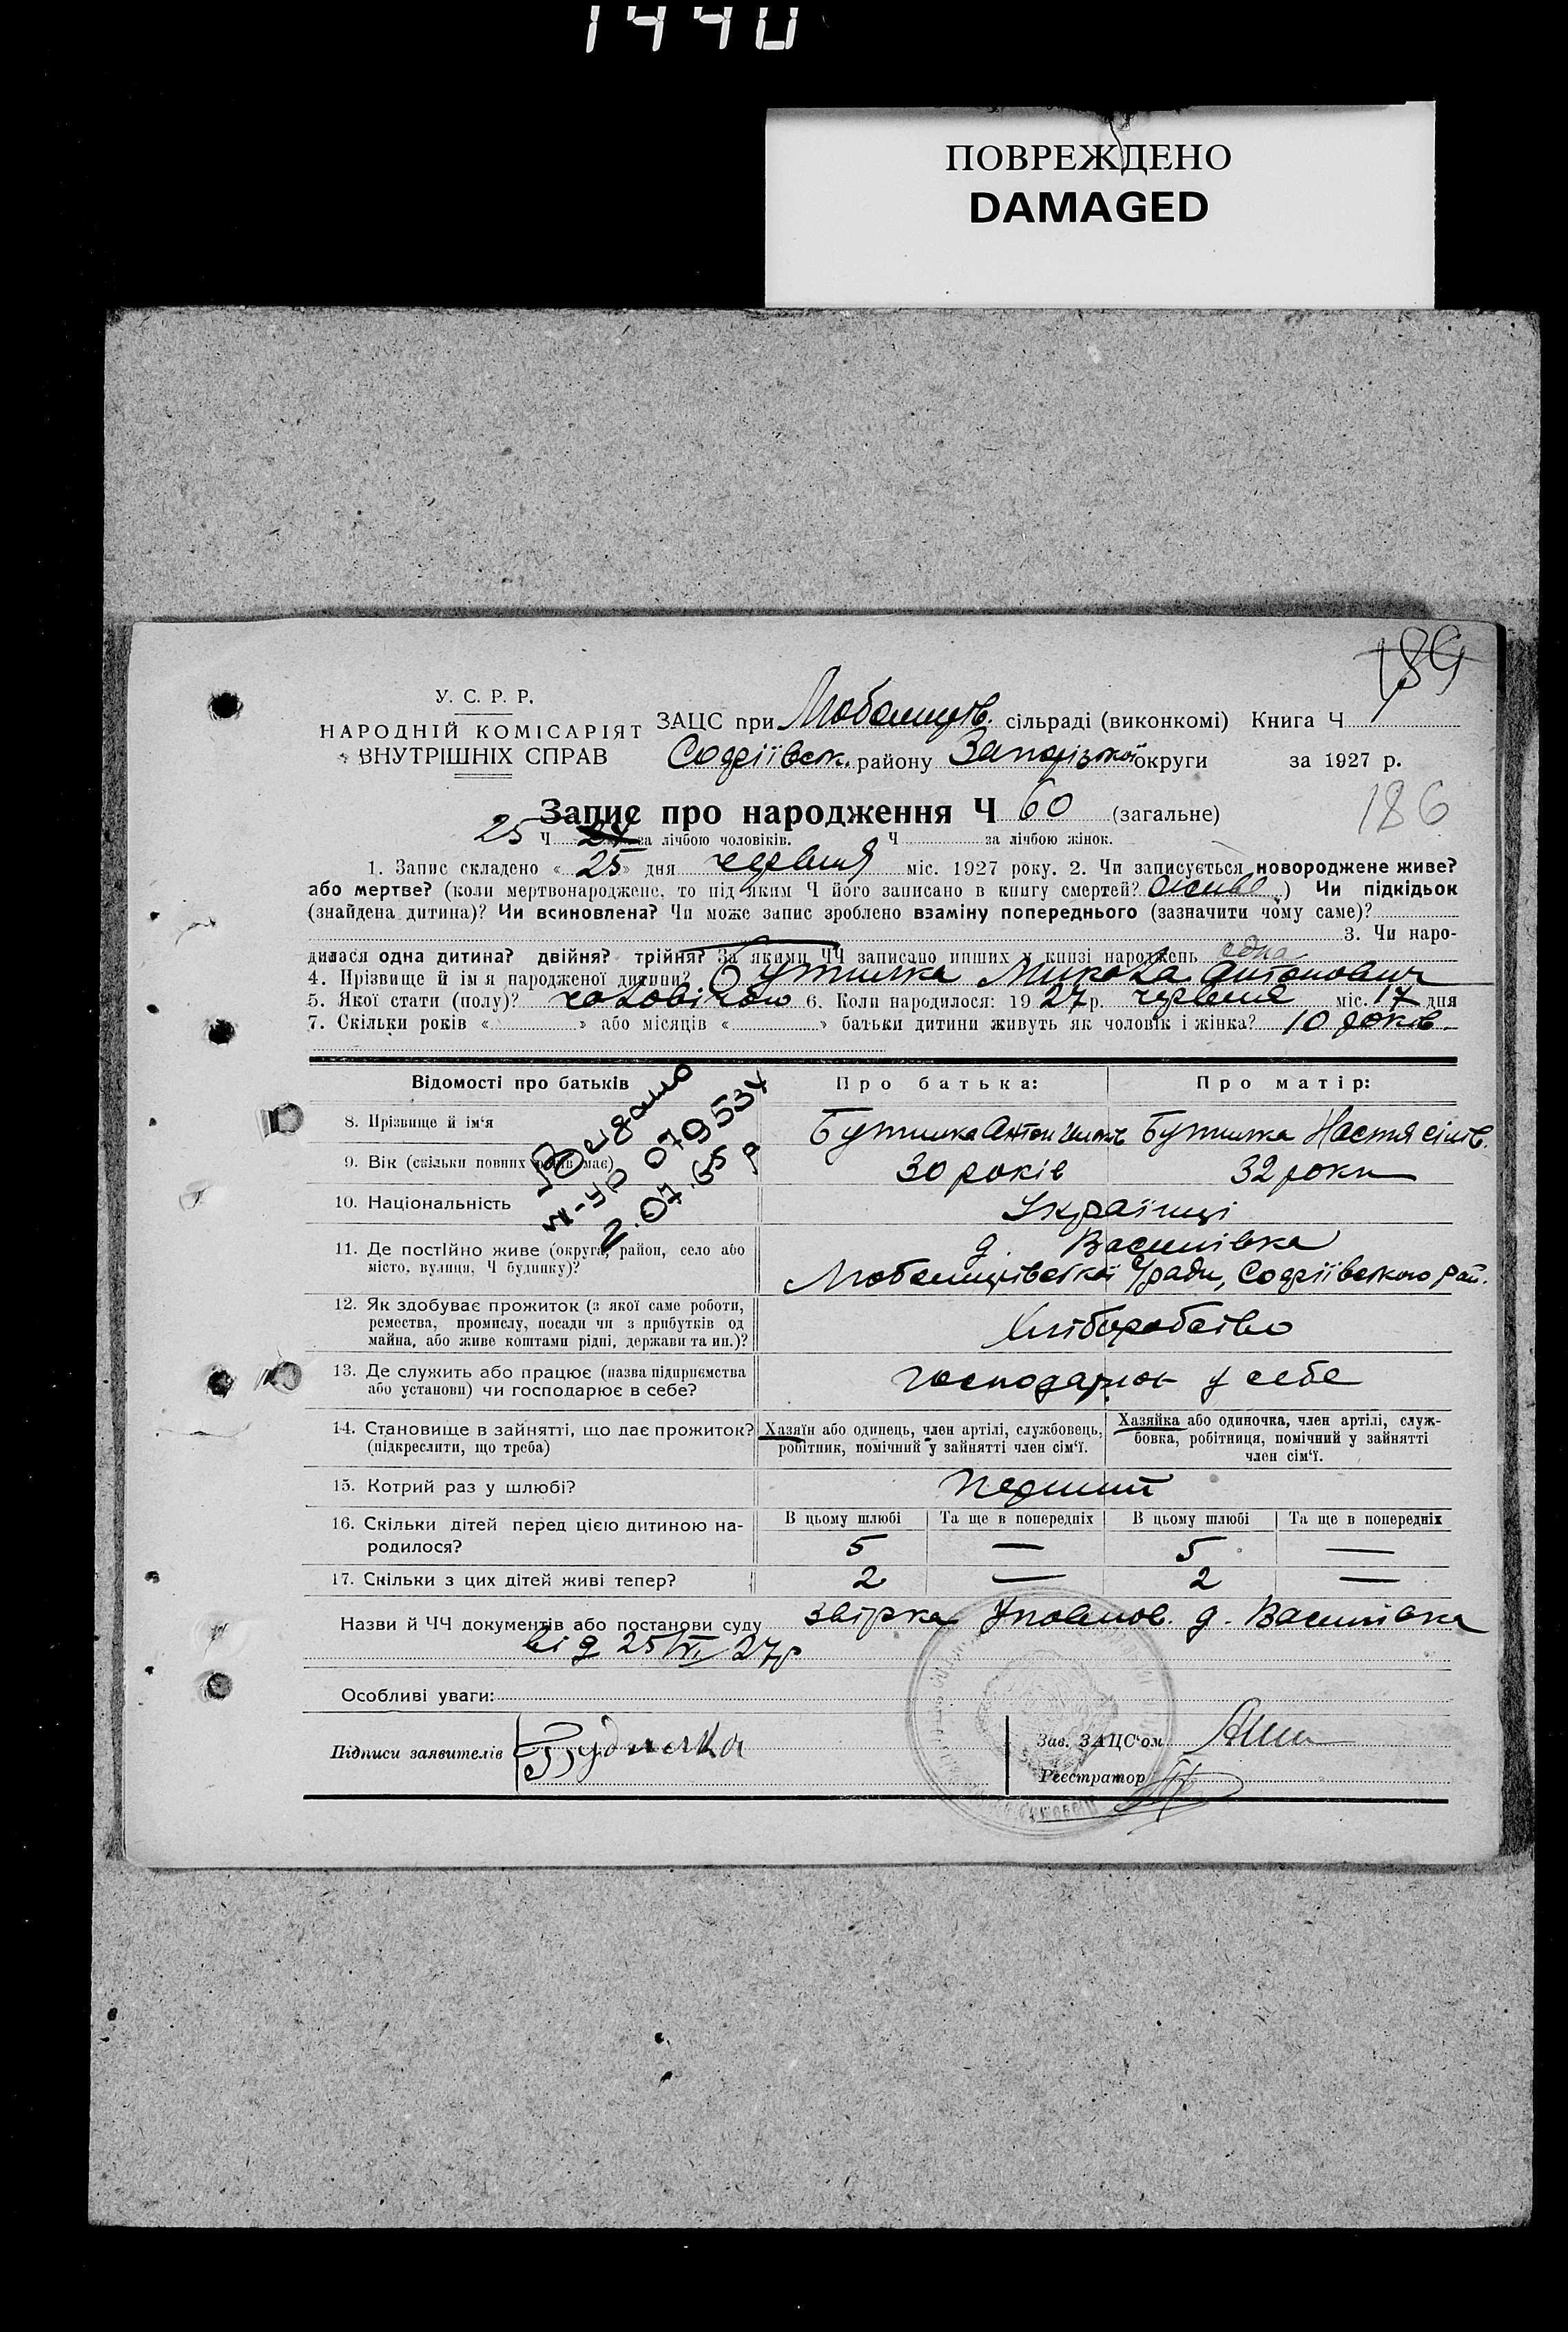 1440
ПОВРЕЖДЕНО
DAMAGED
189
У. С. Р. Р.
НАРОДНІЙ КОМІСАРІЯТ
ВНУТРІШНІХ СПРАВ
ЗАЦС при Любомирів. сільраді (виконкомі) Книга Ч 1
Софіївськ. району Запорізької округи за 1927 р.
186
Запис про народження Ч 60 (загальне)
25 Ч 24 за лічбою чоловіків. Ч за лічбою жінок.
1. Запис складено « 25 » дня червня міс. 1927 року. 2. Чи записується новороджене живе?
або мертве? (коли мертвонароджене, то під яким Ч його записано в книгу смертей? живе ) Чи підкідьок
(знайдена дитина)? Чи всиновлена? Чи може запис зроблено взаміну попереднього (зазначити чому саме)?
3. Чи наро-
дилася одна дитина? двійня? трійня? За якими ЧЧ записано инших у книзі народжень одна
4. Прізвище й ім я народженої дитини? Бутилка Микола Антонович
5. Якої стати (полу)? чоловічої 6. Коли народилося: 1927 р. червня міс. 17 дня
7. Скільки років « » або місяців « » батьки дитини живуть як чоловік і жінка? 10 років
Відомості про батьків Про батька: Про матір:
8. Прізвище й ім'я Бутилка Антон Бутилка Настя
9. Вік (скільки повних років має) 30 років 32 роки
Видано
079534
2.07.65 р
10. Національність Українці
11. Де постійно живе (округа, район, село або
місто, вулиця, Ч будинку)?
д. Василівка
ради, Софіївського рай.
12. Як здобуває прожиток (з якої саме роботи,
ремества, промислу, посади чи з прибутків од
майна, або живе коштами рідні, держави та ин.)?
Хліборобство
13. Де служить або працює (назва підприємства
або установи) чи господарює в себе?
господарює у себе
14. Становище в зайнятті, що дає прожиток?
(підкреслити, що треба)
Хазяїн або одинець, член артілі, службовець,
робітник, помічний у зайнятті член сім'ї.
Хазяйка або одиночка, член артілі, служ-
бовка, робітниця, помічний у зайнятті
член сім'ї.
15. Котрий раз у шлюбі? Перший
16. Скільки дітей перед цією дитиною на-
родилося?
В цьому шлюбі Та ще в попередніх В цьому шлюбі Та ще в попередніх
5 — 5 —
17. Скільки з цих дітей живі тепер? 2 — 2 —
Назви й ЧЧ документів або постанови суду звірка Уповнов. д. Василівка
від 25/VI 27р
Особливі уваги:
Підписи заявителів
Зав. ЗАЦС'ом
Реєстратор